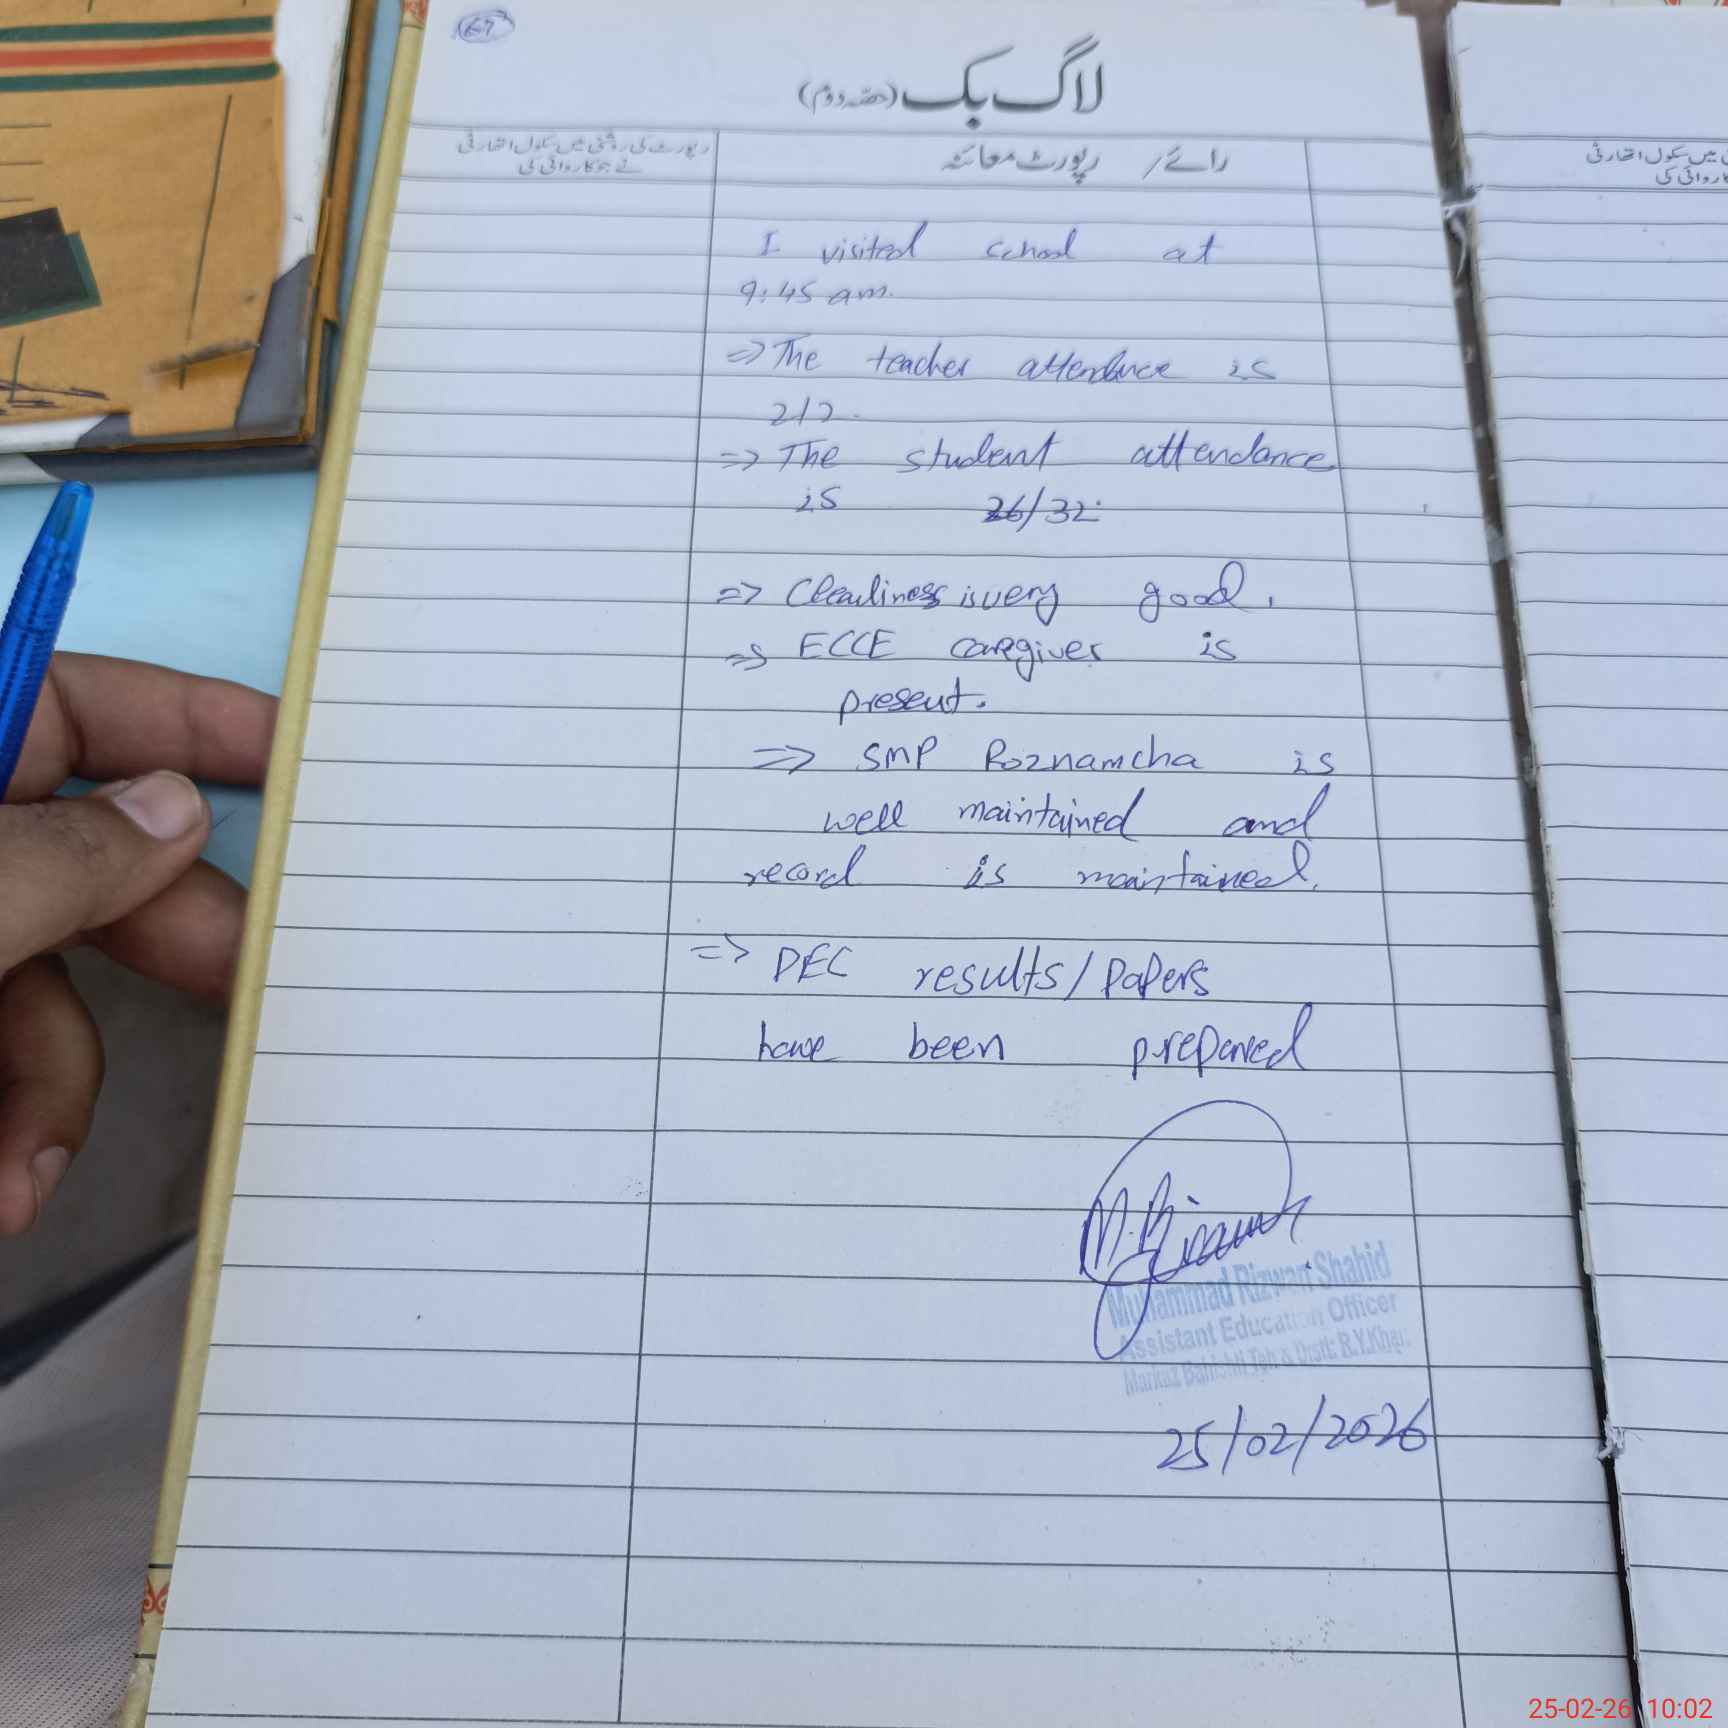 67
لاگ بک (حصہ دوم)
رپورٹ کی روشنی میں سکول اتھارٹی
نے جو کاروائی کی
رائے / رپورٹ معائنہ
میں سکول اتھارٹی
کاروائی کی
I visited school at
9:45 am.
=> The teacher attendance is
2/2.
=> The student attendance
is 26/32.
=> Cleanliness is very good.
=> ECCE caregiver is
present.
=> SMP Roznamcha is
well maintained and
record is maintained.
=> DEC results/papers
have been prepared
M. Rizwan
Muhammad Rizwan Shahid
Assistant Education Officer
Markaz Bahishti Teh & Distt: R.Y.Khan
25/02/2026
25-02-26 10:02